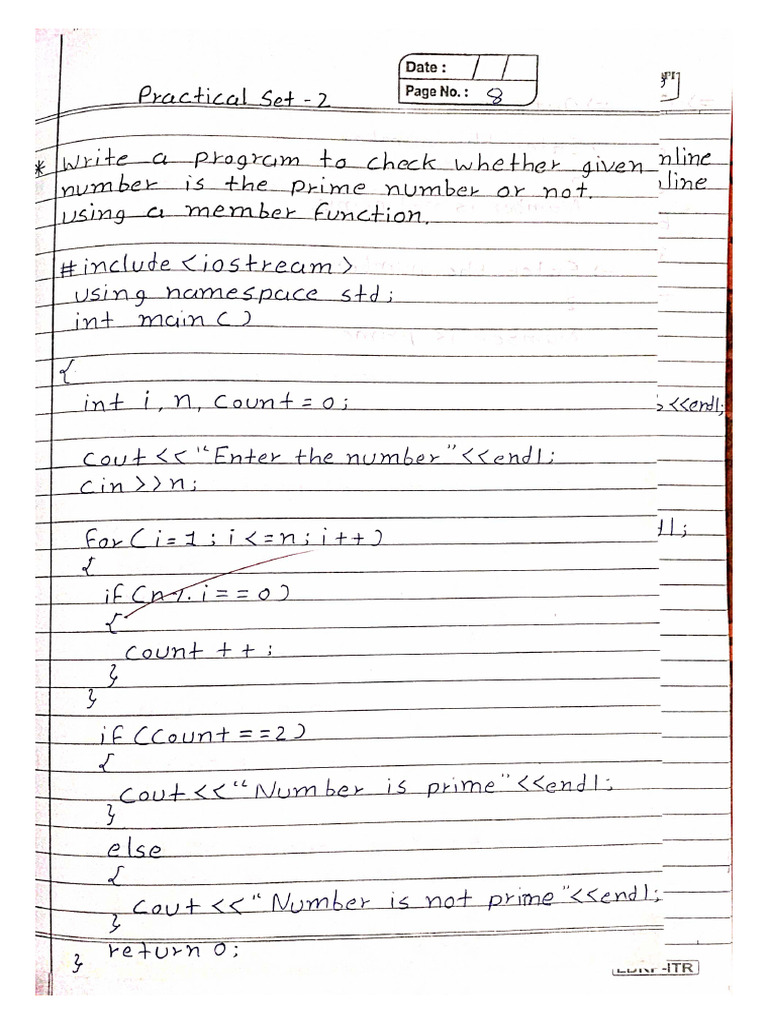 Date : / /
Page No. : 8
Practical Set - 2
* Write a program to check whether given
number is the prime number or not.
using a member function.
#include <iostream>
using namespace std;
int main ( )
{
int i, n, count = 0;
cout << "Enter the number" <<endl;
cin >> n;
for ( i = 1 ; i < = n ; i + + )
{
if ( n % i = = 0 )
{
count + + ;
}
}
if ( count = = 2 )
{
cout << "Number is prime" <<endl;
}
else
{
cout << "Number is not prime" <<endl;
}
return 0;
}
nline
line
<<endl;
l;
-ITR